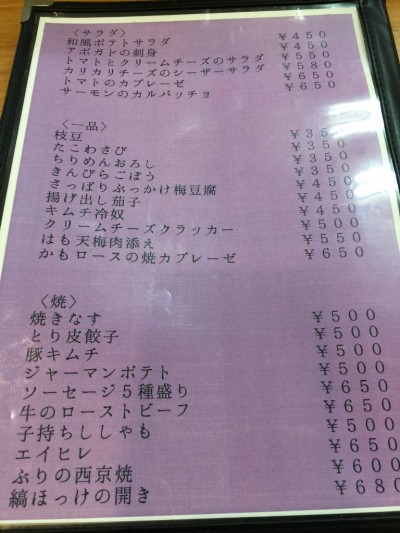 〈サラダ〉
和風ポテトサラダ ￥４５０
アボガドの刺身 ￥４５０
トマトとクリームチーズのサラダ ￥５５０
カリカリチーズのシーザーサラダ ￥５８０
トマトのカプレーゼ ￥６５０
サーモンのカルパッチョ ￥６５０
〈一品〉
枝豆 ￥３５０
たこわさび ￥３５０
ちりめんおろし ￥３５０
きんぴらごぼう ￥３５０
さっぱりぶっかけ梅豆腐 ￥４５０
揚げ出し茄子 ￥４５０
キムチ冷奴 ￥４５０
クリームチーズクラッカー ￥５００
はも天梅肉添え ￥５５０
かもロースの焼カプレーゼ ￥６５０
〈焼〉
焼きなす ￥５００
とり皮餃子 ￥５００
豚キムチ ￥５００
ジャーマンポテト ￥５００
ソーセージ５種盛り ￥６５０
牛のローストビーフ ￥６５０
子持ちししゃも ￥５００
エイヒレ ￥６５０
ぶりの西京焼 ￥６００
縞ほっけの開き ￥６８０